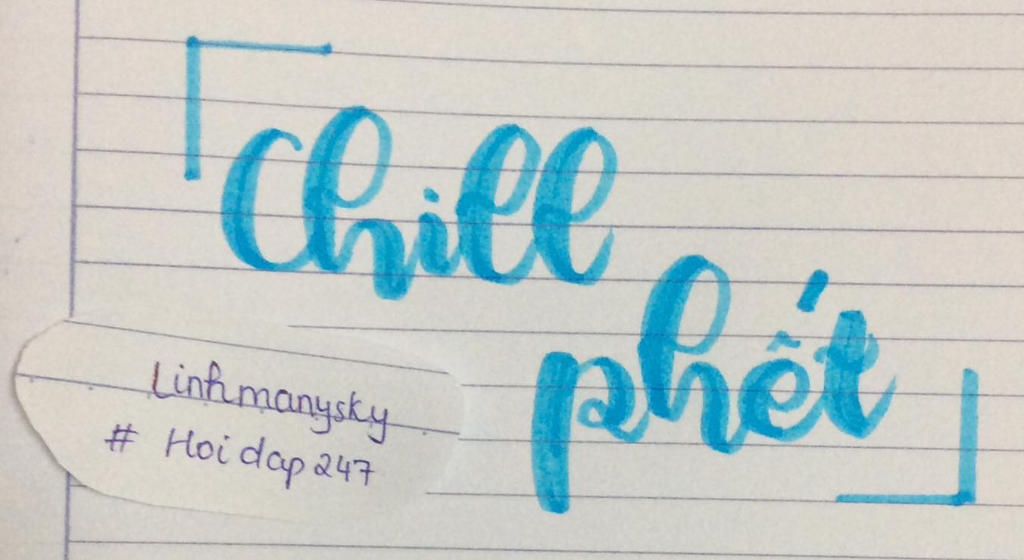 Chill
phết
Linhmanysky
# Hoidap247